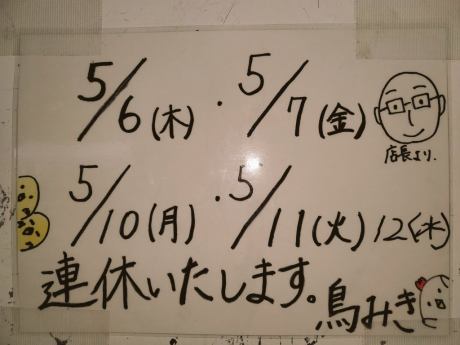 5/6(木)・5/7(金)
店長より.
5/10(月)・5/11(火)12(水)
連休いたします。
鳥みき